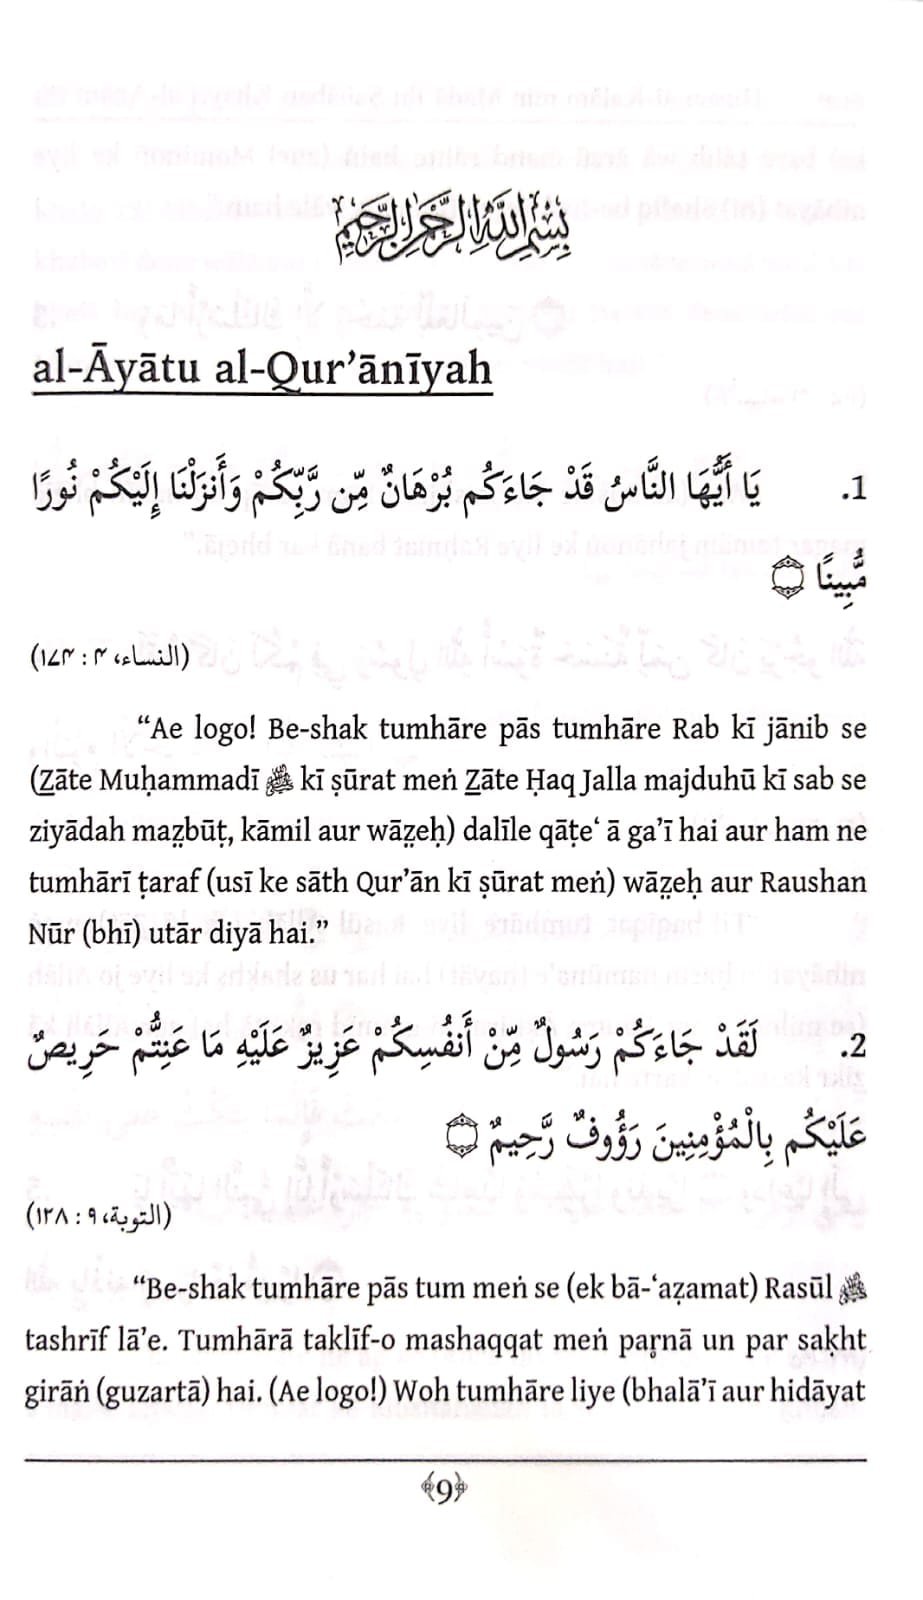 بِسْمِ اللَّهِ الرَّحْمَٰنِ الرَّحِيمِ
al-Āyātu al-Qur’ānīyah
1. يَا أَيُّهَا النَّاسُ قَدْ جَاءَكُم بُرْهَانٌ مِّن رَّبِّكُمْ وَأَنزَلْنَا إِلَيْكُمْ نُورًا
مُّبِينًا ۝
(النساء، ٤ : ١٧٤)
“Ae logo! Be-shak tumhāre pās tumhāre Rab kī jānib se
(Z̲āte Muḥammadī ﷺ kī ṣūrat meṅ Z̲āte Ḥaq Jalla majduhū kī sab se
ziyādah maz̤būt̤, kāmil aur wāz̤eḥ) dalīle qāt̤e‘ ā ga’ī hai aur ham ne
tumhārī t̤araf (usī ke sāth Qur’ān kī ṣūrat meṅ) wāz̤eḥ aur Raushan
Nūr (bhī) utār diyā hai.”
2. لَقَدْ جَاءَكُمْ رَسُولٌ مِّنْ أَنفُسِكُم عَزِيزٌ عَلَيْهِ مَا عَنِتُّمْ حَرِيصٌ
عَلَيْكُم بِالْمُؤْمِنِينَ رَؤُوفٌ رَّحِيمٌ ۝
(التوبة، ٩ : ١٢٨)
“Be-shak tumhāre pās tum meṅ se (ek bā-‘az̤amat) Rasūl ﷺ
tashrīf lā’e. Tumhārā taklīf-o mashaqqat meṅ paṛnā un par saḳht
girāṅ (guzartā) hai. (Ae logo!) Woh tumhāre liye (bhalā’ī aur hidāyat
﴾9﴿